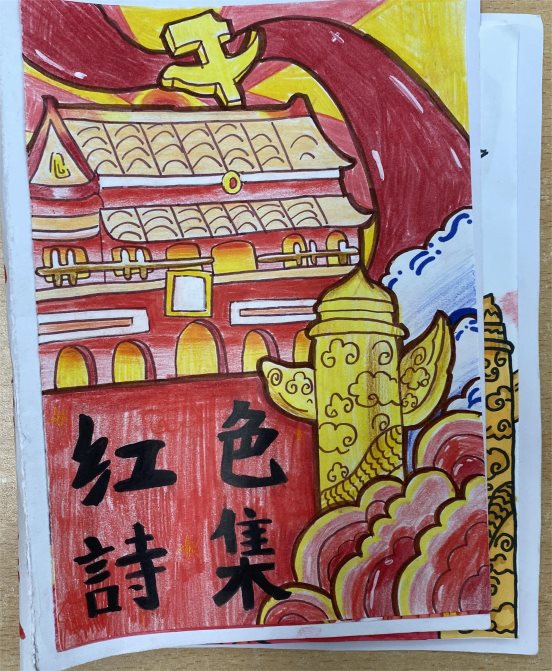 红色
詩集